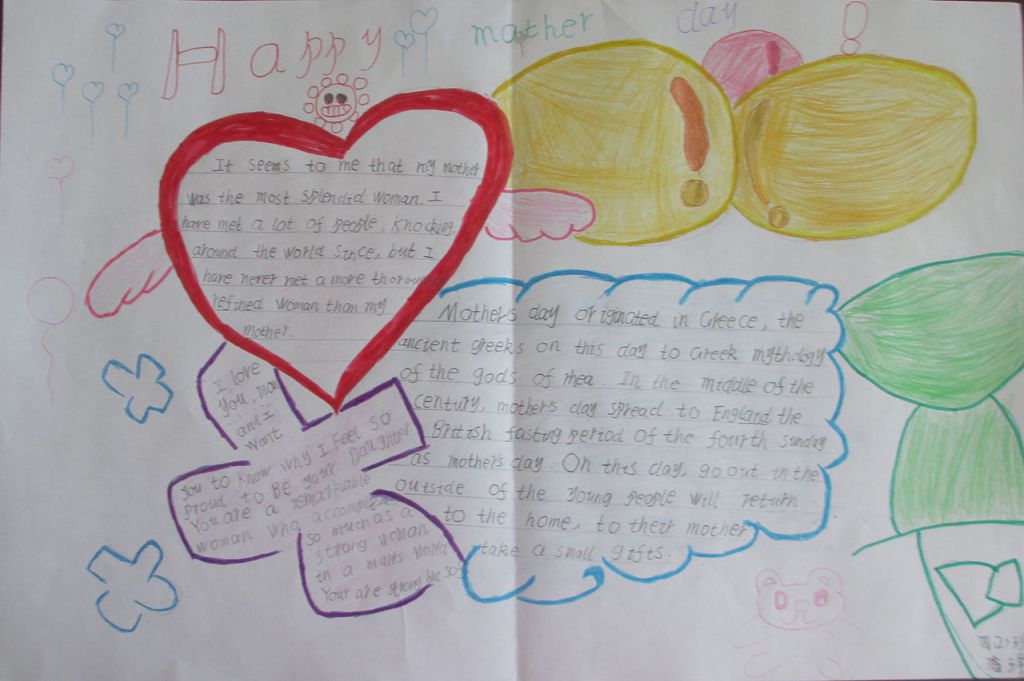 Happy mother day!
It seems to me that my mother
was the most splendid woman. I
have met a lot of people, knocking
around the world since, but I
have never net a more thorou
refined woman than my
mother.
Mother's day originated in Greece, the
ancient greeks on this day to Greek mythology
of the gods of rhea. In the middle of the
century, mother's day spread to England the
British fasting period of the fourth sunday
as mother's day. On this day, go out in the
outside of the young people will return
to the home, to their mother
take a small gifts.
I love
you, mom
and I
want
you to know why I feel so
proud to be your Daughter
You are a remarkable
woman who accomplishe
so much as a
strong woman
in a man's world
You are strong but so